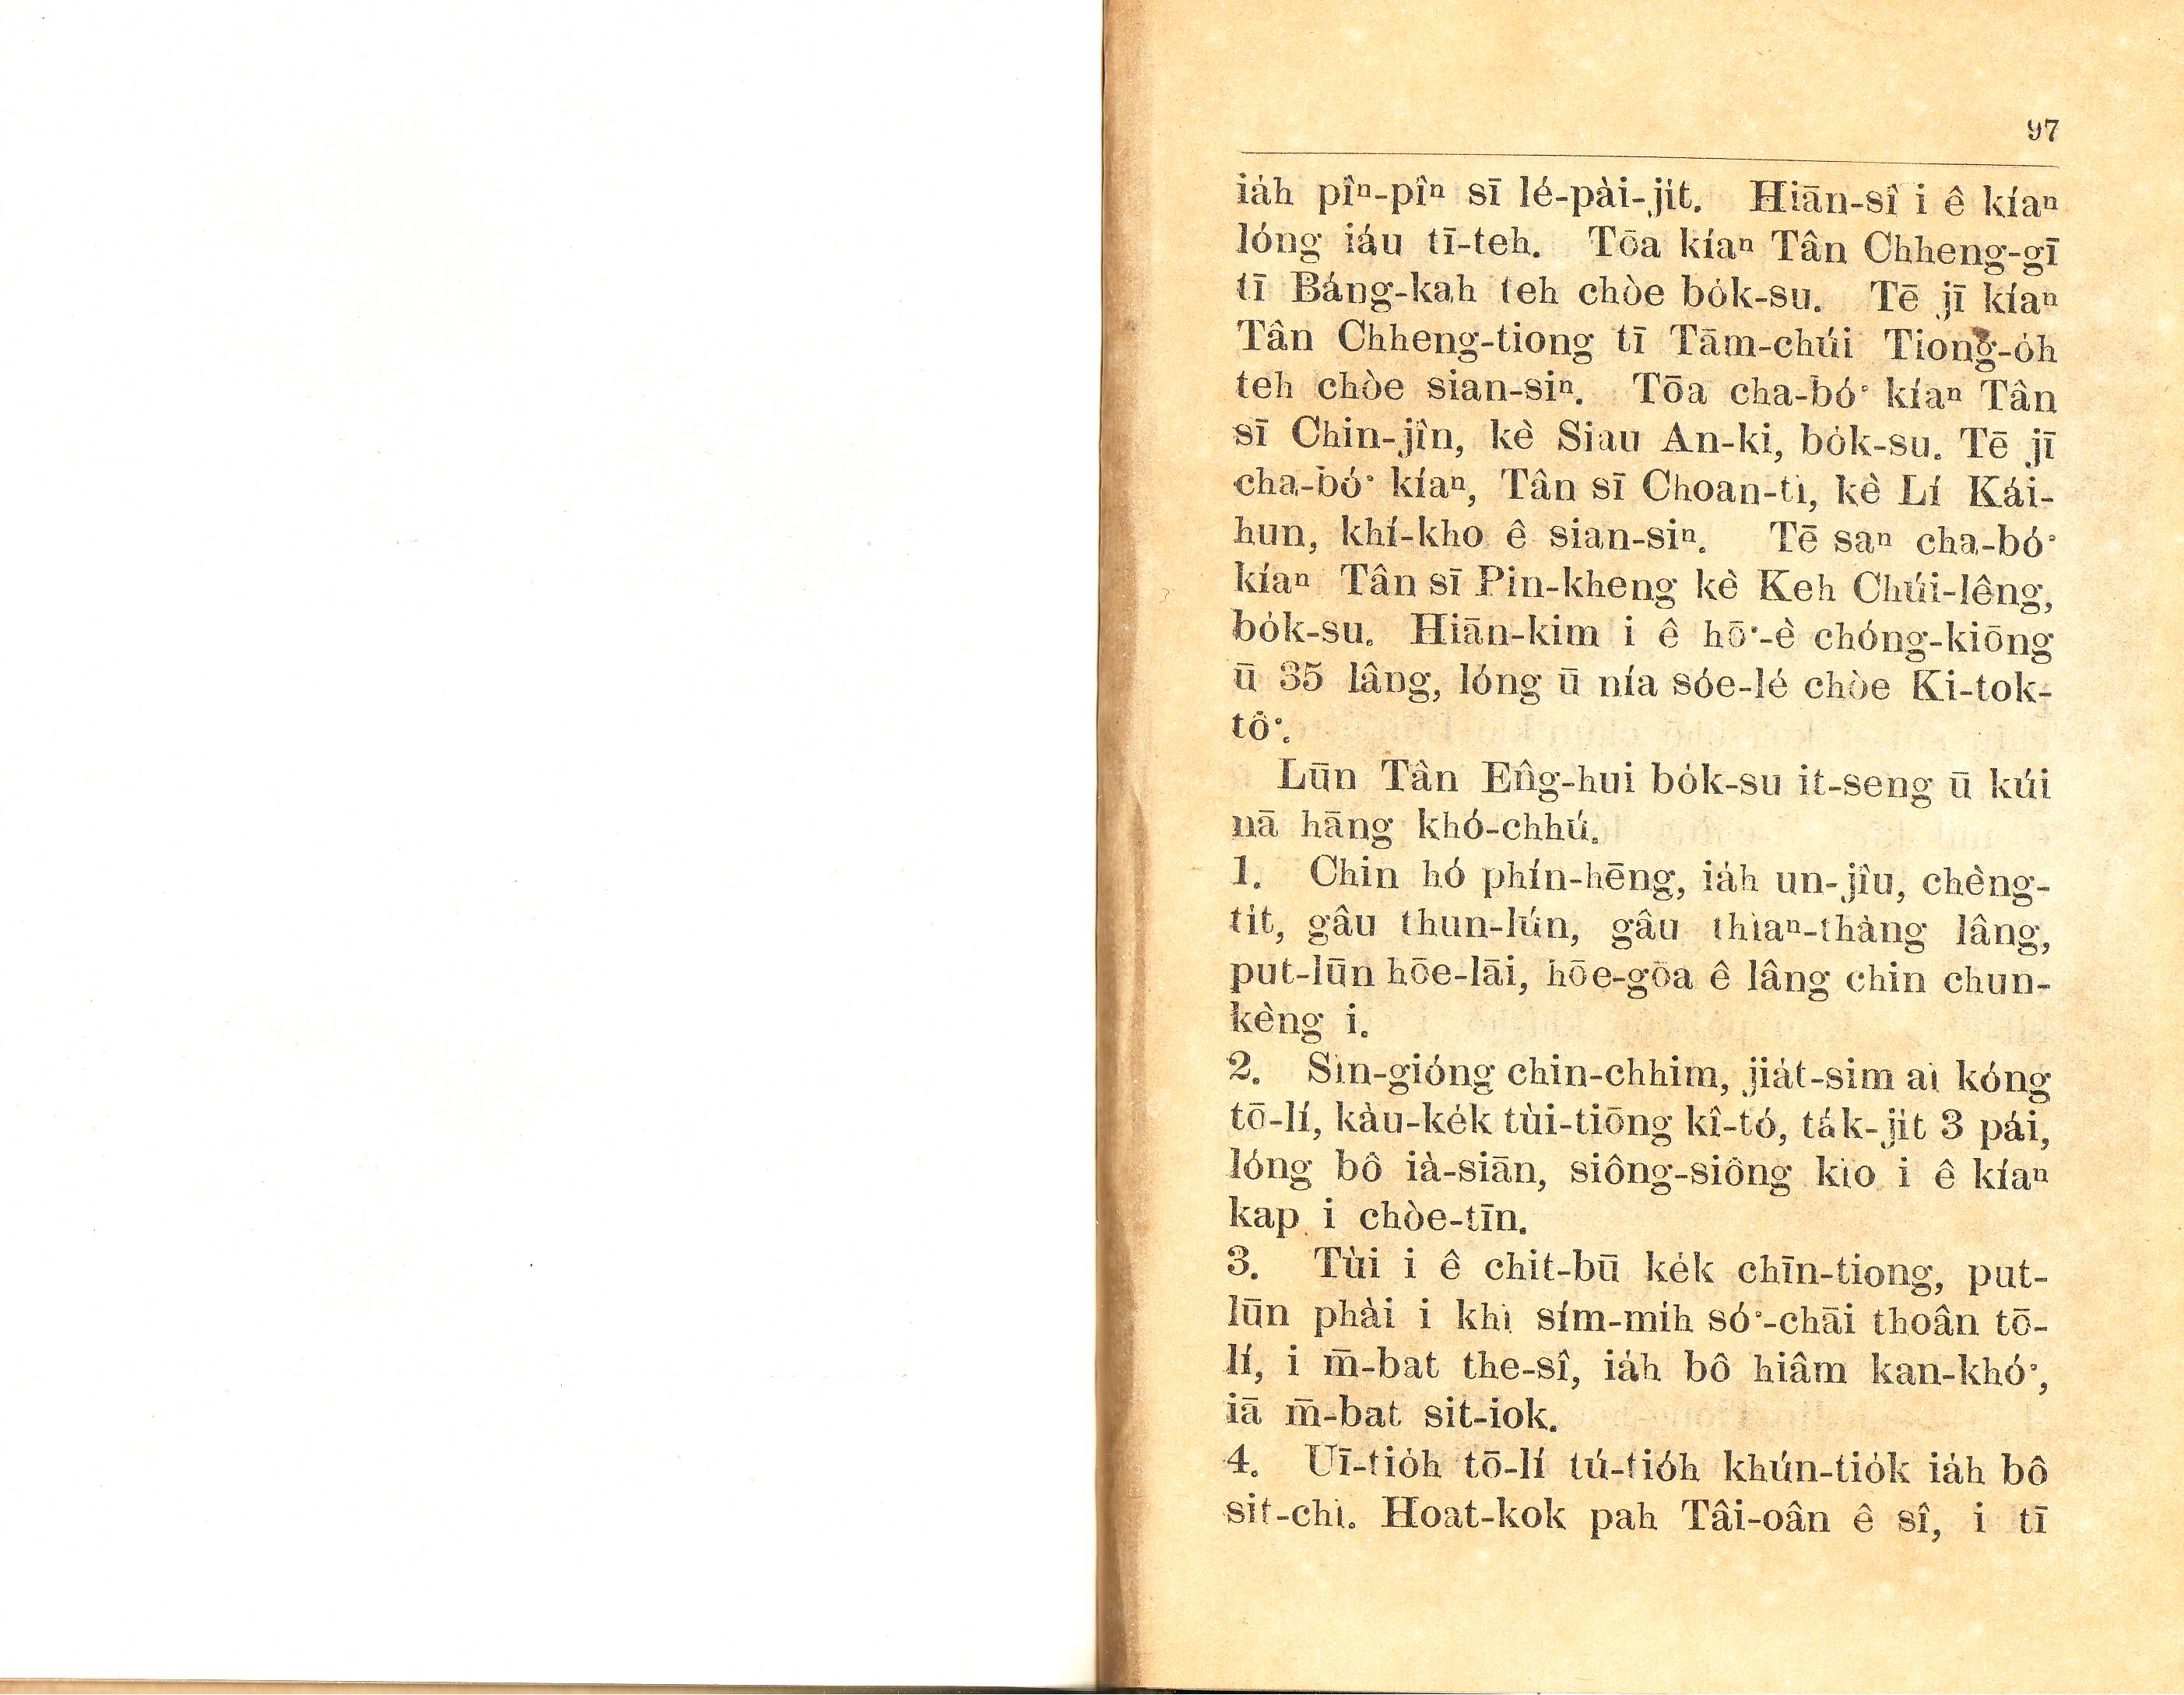 97
ia̍h pîⁿ-pîⁿ sī lé-pài-ji̍t. Hiān-sî i ê kíaⁿ
lóng iáu tī-teh. Tōa kíaⁿ Tân Chheng-gī
tī Báng-kah teh chòe bo̍k-su. Tē jī kíaⁿ
Tân Chheng-tiong tī Tām-chúi Tiong-o̍h
teh chòe sian-siⁿ. Tōa cha-bó͘ kíaⁿ Tân
sī Chin-jîn, kè Siau An-ki, bo̍k-su. Tē jī
cha-bó͘ kíaⁿ, Tân sī Choan-tì, kè Lí Kái-
hun, khí-kho ê sian-siⁿ. Tē saⁿ cha-bó͘
kíaⁿ Tân sī Pin-kheng kè Keh Chúi-lêng,
bo̍k-su. Hiān-kim i ê hō͘-è chóng-kiōng
ū 35 lâng, lóng ū nía sóe-lé chòe Ki-tok-
tô͘.
Lūn Tân Eêng-hui bo̍k-su it-seng ū kúi
nā hāng khó-chhú.
1. Chin hó phín-hēng, ia̍h un-jîu, chèng-
ti̍t, gâu thun-lún, gâu thìaⁿ-thàng lâng,
put-lūn hōe-lāi, hōe-gōa ê lâng chin chun-
kèng i.
2. Sìn-gióng chin-chhim, jia̍t-sim ài kóng
tō-lí, kàu-ke̍k tùi-tiōng kî-tó, ta̍k-ji̍t 3 pái,
lóng bô ià-siān, siông-siông kio i ê kíaⁿ
kap i chòe-tīn.
3. Tùi i ê chit-bū ke̍k chīn-tiong, put-
lūn phài i khì sím-mi̍h só͘-chāi thoân tō-
lí, i m̄-bat the-sî, ia̍h bô hiâm kan-khó͘,
iā m̄-bat sit-iok.
4. Uī-tio̍h tō-lí tú-tio̍h khún-tio̍k ia̍h bô
sit-chì. Hoat-kok pah Tâi-oân ê sî, i tī